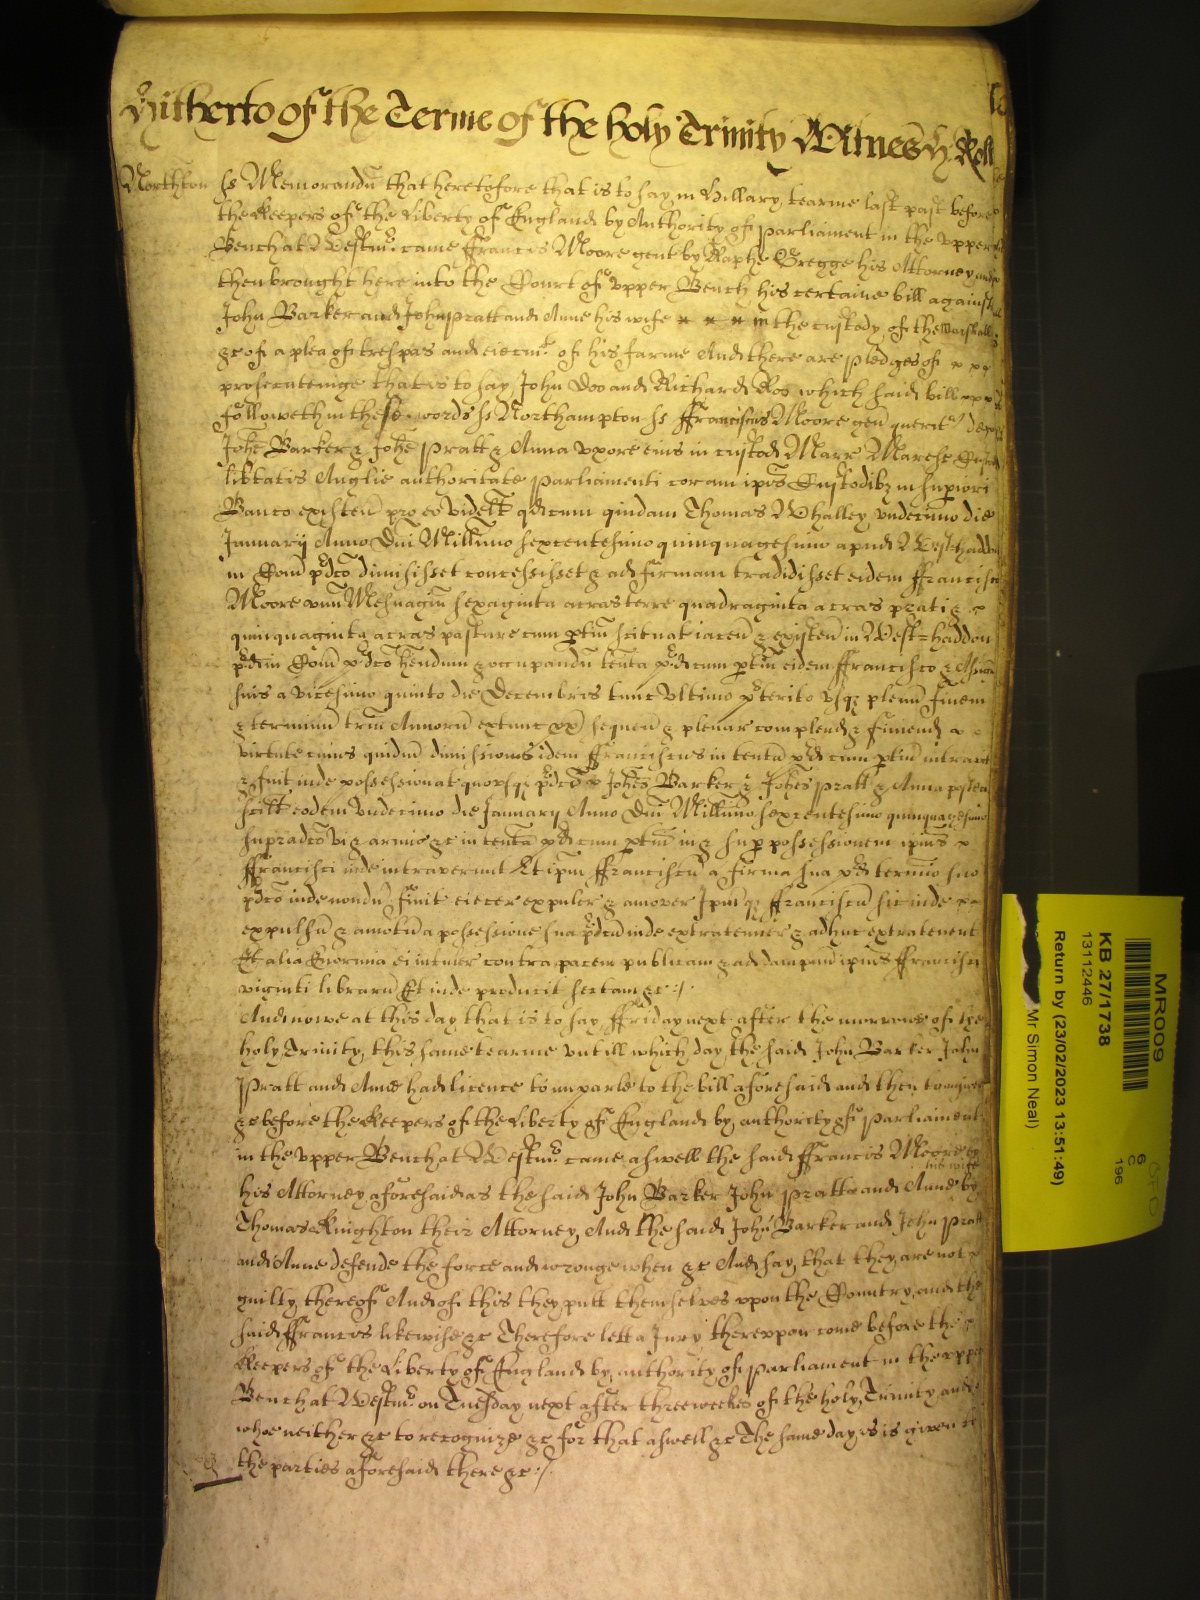 Hitherto of the Terme of the holy Trinity Witness H Roll
Northton ss Memorandu that heretofore that is to say in Hillary tearme last past before
the Keepers of the Liberty of England by Authority of parliament in the vpper
Bench at Westmr. came ffrancis Moore gent by Raphe Gregge his Attorney and
then brought here into the Court of vpper Bench his certaine bill against
John Barker and John Pratt and Anne his wife x x x in the custody of the Marshall
&c of a plea of trespas and eiectmt of his farme And there are pledges of
prosecuteinge that is to say John Doo and Richard Roo which said bill
followeth in these words ss Northampton ss ffranciscus Moore gen querit de
Johe Barker & Johe Pratt & Anna vxore eius in custod Marr Maresc
libtatis Anglie authoritate parliamenti coram ipis Custodibz in supiori
Banco existen pro eo videltt qd cum quidam Thomas Whalley vndecimo die
Januarij Anno Dni Millimo sexcentesimo quinquagesimo apud West haddon
in Com pdco dimisisset concessisset & ad firmam tradidisset eidem ffrancisco
Moore vnu Mesuagiu sexaginta acras terre quadraginta acras prati &
quinquaginta acras pasture cum ptin scituat iacen & existen in West=haddon
pd in Com pdco hendum & occupandu tenta pd cum ptin eidem ffrancisco & Assign
suis a vicesimo quinto die Decembris tunc vltimo pterito vsqz plenu finem
& terminu triu Annoru extunc px sequen & plenar complend & finiend
virtute cuius quidm dimissionis idem ffranciscus in tenta pd cum ptin intravit
& fuit inde possessionat quovsqz pdco Johes Barker & Johes Pratt & Anna postea
scilt eodem vndecimo die January Anno Dni Millimo sexcentesimo quinquagesimo
supradco vi & armis &c in tenta pd cum ptin in & sup possessionem ipius
ffrancisci inde intraverunt Et ipm ffranciscu a firma sua pd termio suo
pdco inde nondu finit eiecer expuler & amover Ipm qz ffranciscu sic inde
expulsu & amotu a possessione sua pdca inde extratenuer & adhuc extratenent
Et alia Enormia ei intuler contra pacem publicam & ad dampnu ipius ffrancisci
viginti libraru Et inde producit sectam &c :/.
And nowe at this day that is to say ffriday next after the morrowe of the
holy Trinity this same tearme vntill which day the said John Barker John
Pratt and Anne had licence to imparle to the bill aforesaid and then to answer
&c before the Keepers of the Liberty of England by authority of Parliament
in the vpper Bench at Westmr. came aswell the said ffrancis Moore by
his wife
his Attorney aforesaid as the said John Barker John Pratt and Anne by
Thomas Knighton their Attorney And the said John Barker and John Pratt
and Anne defende the force and wronge when &c And say that they are not
guilty thereof And of this they putt themselves vpon the Country and the
said ffrancis likewise &c Therefore lett a Jury therevpon come before the
Keepers of the Liberty of England by authority of parliament in the vpper
Bench at Westmr. on Tuesday next after three weekes of the holy Trinity and
whoe neither &c to recognize &c for that aswell &c The same day is is given to
the parties aforesaid there &c :/.
MR009
KB 27/1738
13112446
6
C
196
Return by (23/02/2023 13:51:49)
Mr Simon Neal)